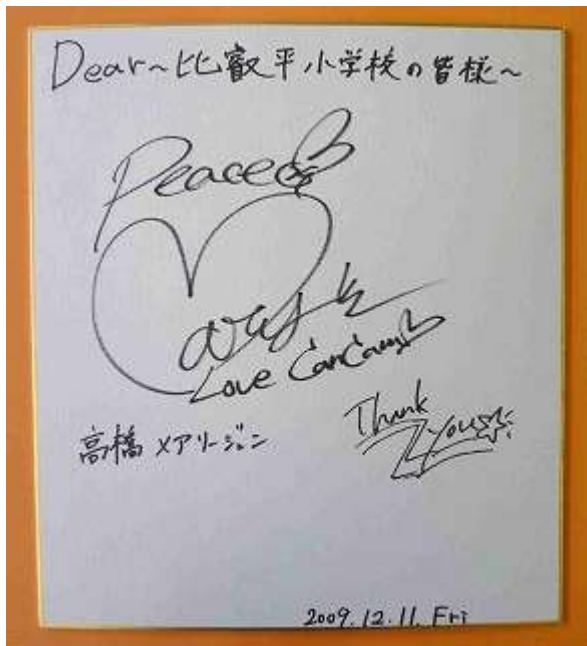 Dear~比叡平小学校の皆様~
Peace
Love CanCam
高橋 メアリージュン
Thank you
2009.12.11. Fri